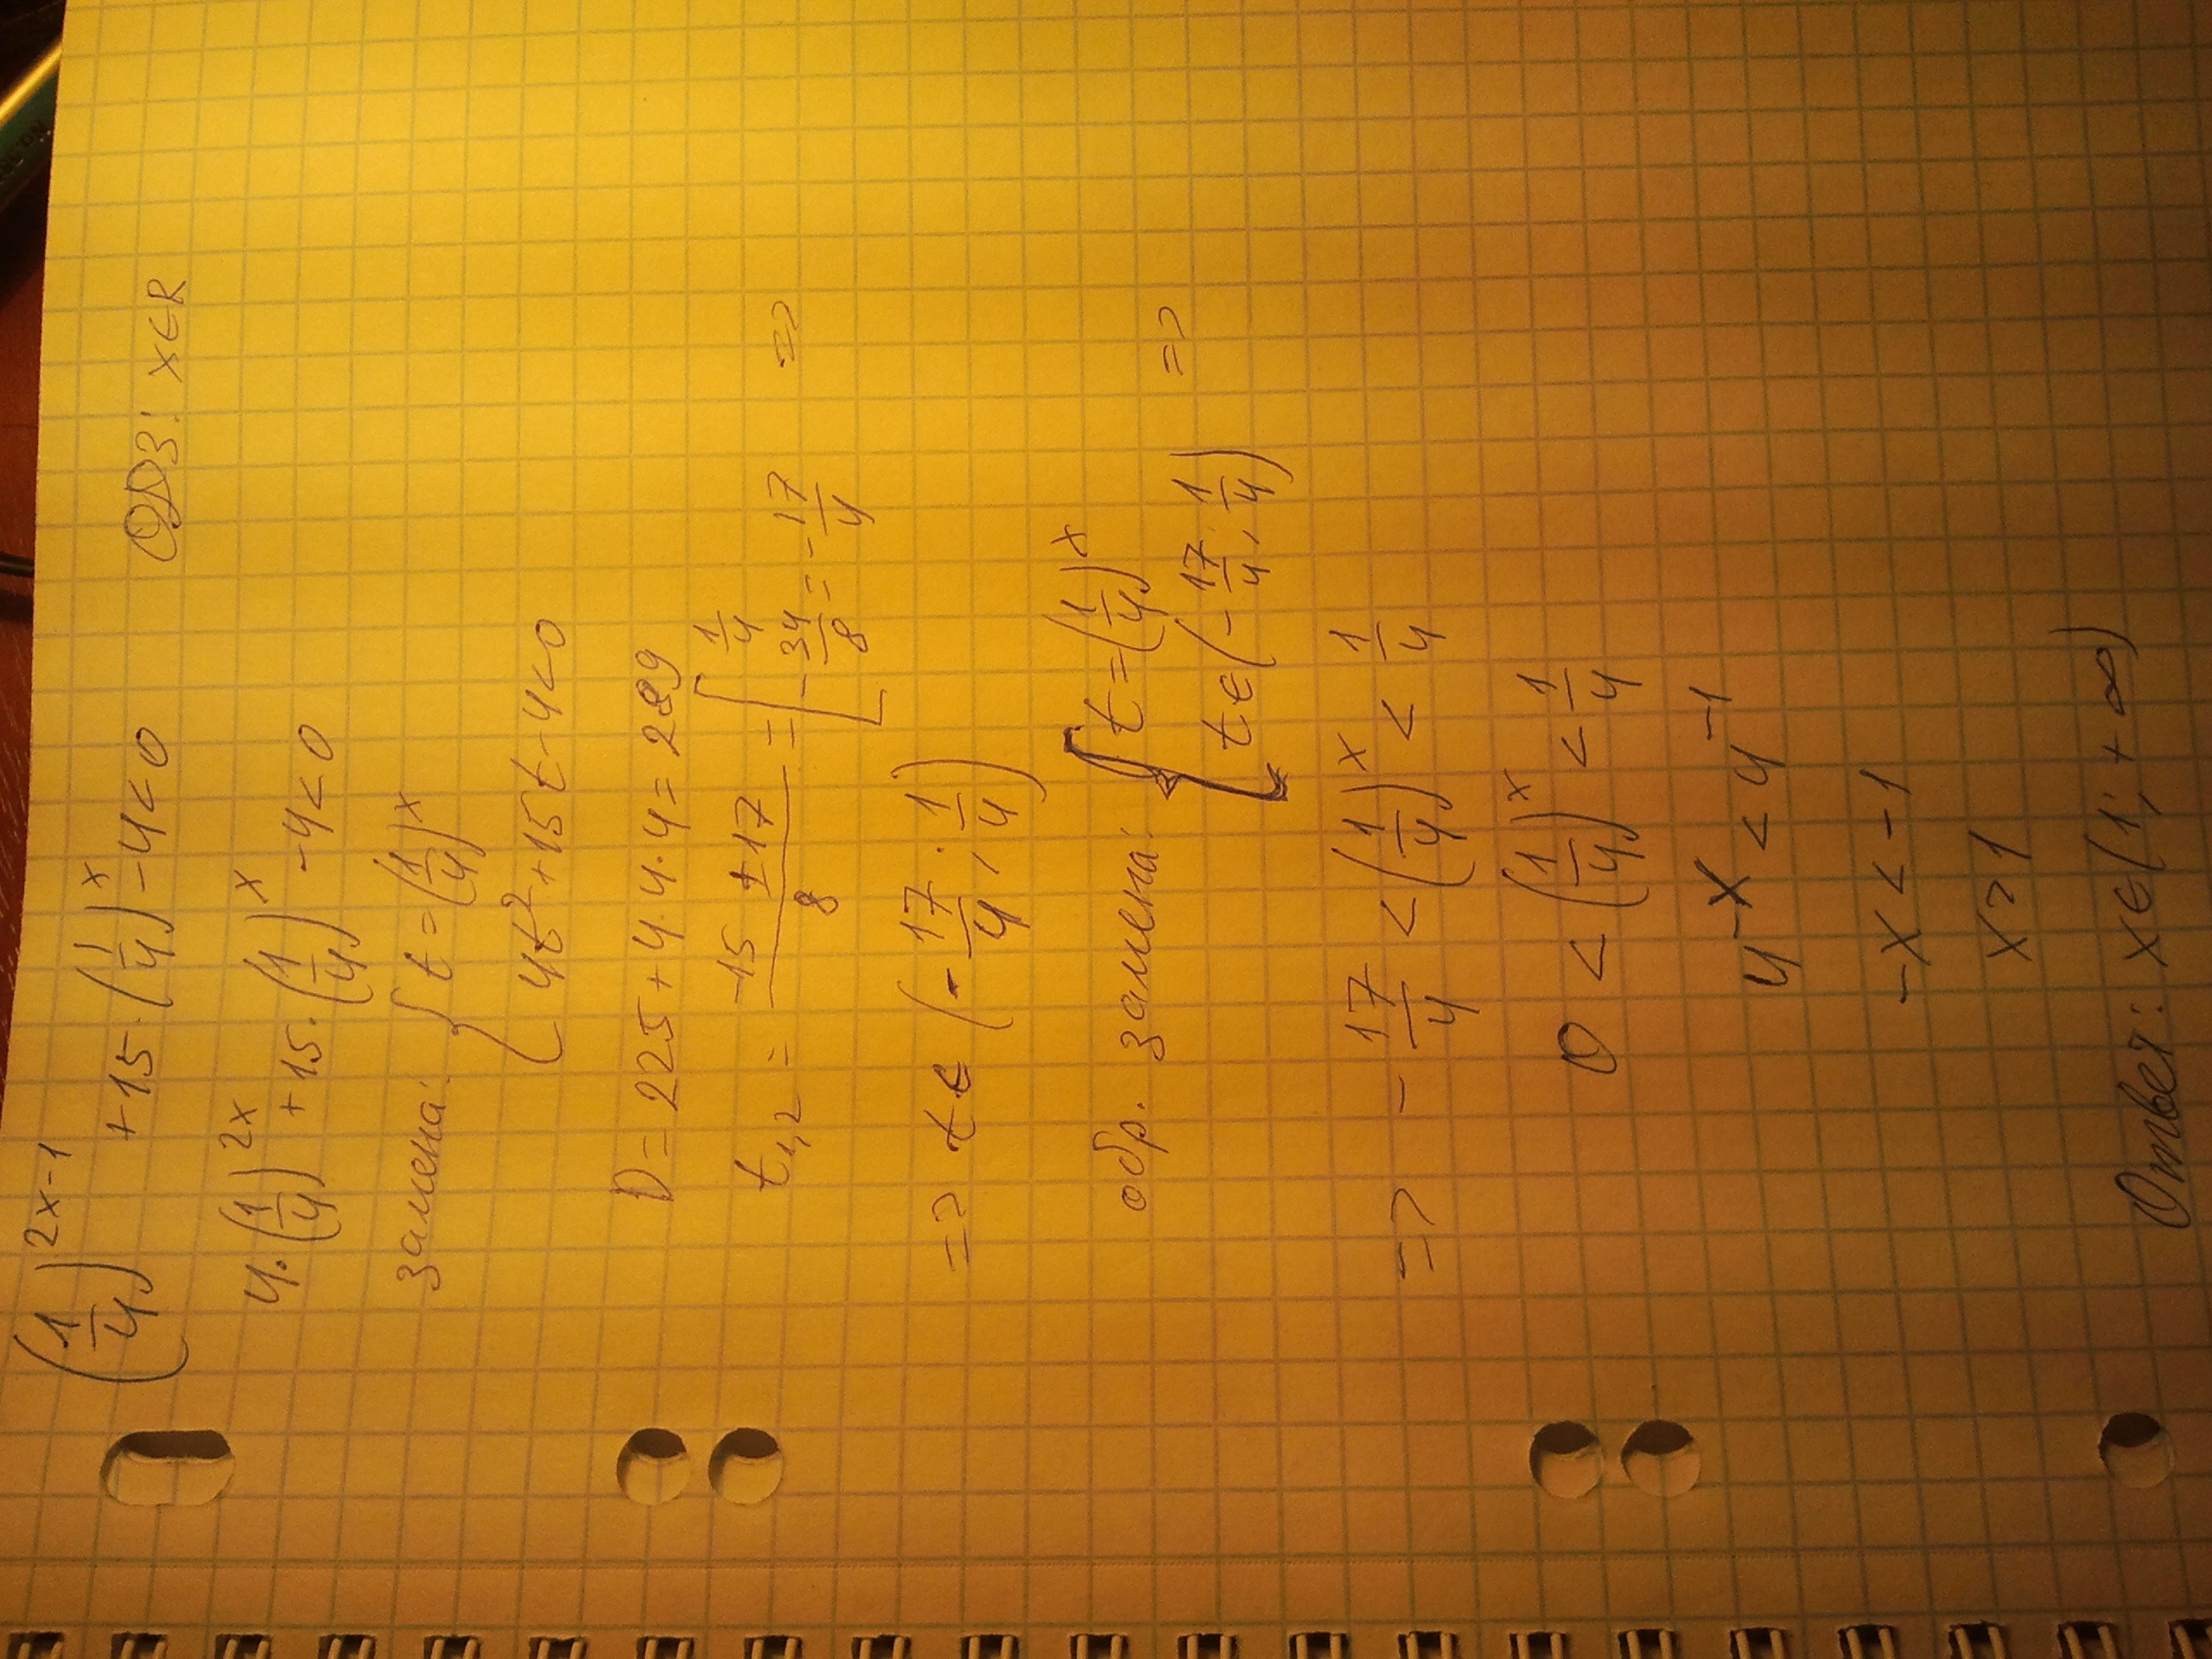 (1/4)^(2x-1) + 15·(1/4)^x - 4 < 0 ОДЗ: x∈R
4·(1/4)^(2x) + 15·(1/4)^x - 4 < 0
замена: { t = (1/4)^x
4t² + 15t - 4 < 0
D = 225 + 4·4·4 = 289
t₁,₂ = (-15 ± 17)/8 = [ 1/4
-34/8 = -17/4 =>
=> t∈ (-17/4; 1/4)
обр. замена: { t = (1/4)^x
t∈(-17/4; 1/4) =>
=> -17/4 < (1/4)^x < 1/4
0 < (1/4)^x < 1/4
4^-x < 4^-1
-x < -1
x > 1
Ответ: x∈(1; +∞)